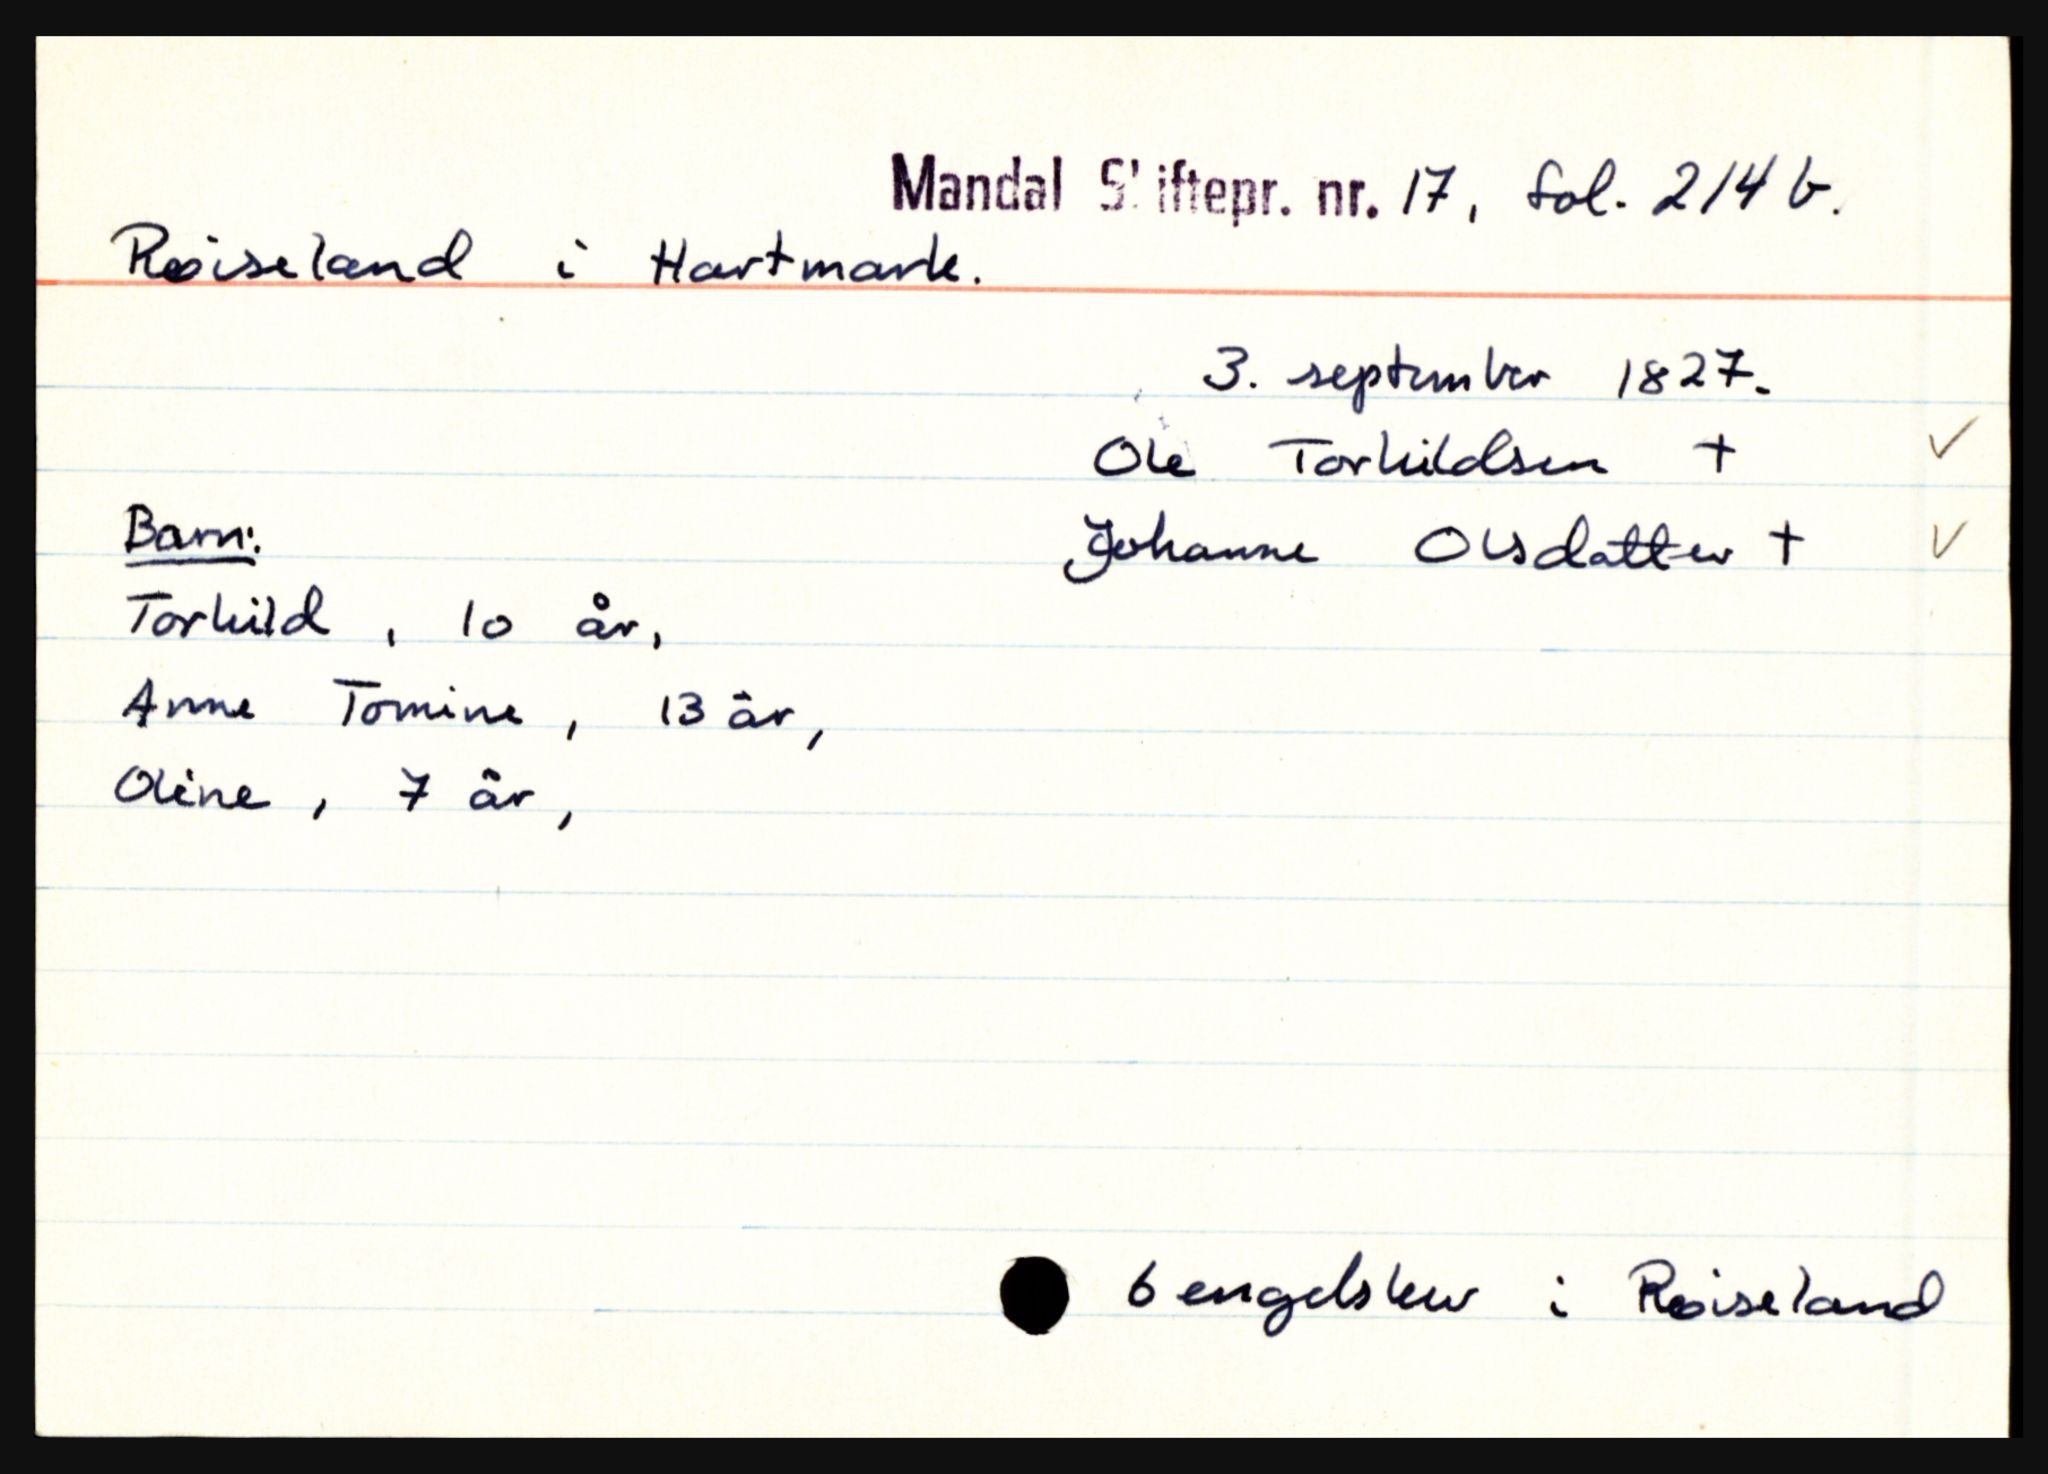 Mandal Skiftepr. nr. 17, fol. 214 b.
Røiseland i Hartmark.
3. september 1827.
Ole Torkildsen + ✓
Johanne Olsdatter + ✓
Barn:
Torkild, 10 år,
Anne Tomine, 13 år,
Oline, 7 år,
6 engelsker i Røiseland